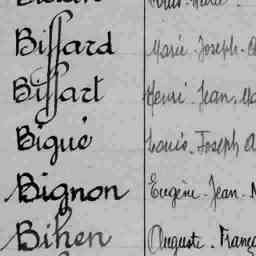 Biffard Marie-Joseph-
Biffart Henri-Jean-Ma
Bigué Louis-Joseph A
Bignon Eugène-Jean-M
Bihen Auguste-Franço